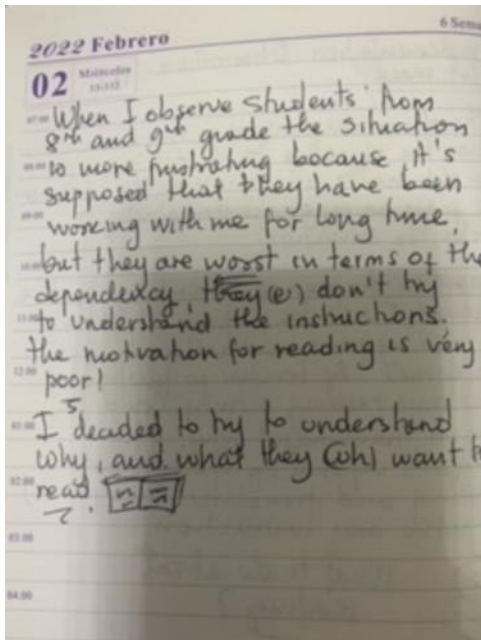 6 Sema
2022 Febrero
02 Miércoles
07:00 When I observe students from
8th and 9th grade the situation
is more frustrating bocause it's
supposed that they have been
09:00 working with me for long time,
but they are worst in terms of the
dependency, they (e) don't try
to understand the instructions.
the motivation for reading is very
12:00 poor!
01:00 I decided to try to understand
why, and what they (wh) want t
02:00 read
03:00
04:00